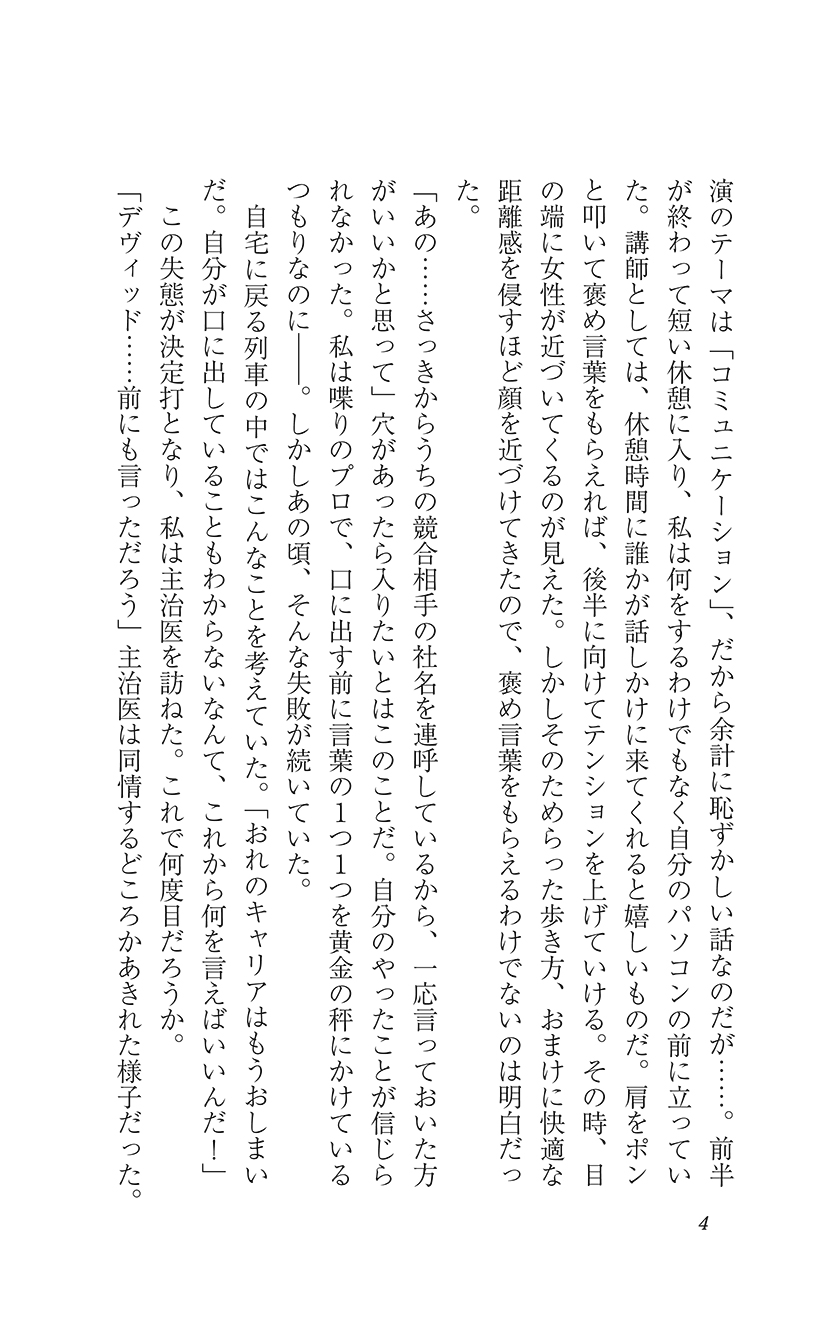 演のテーマは「コミュニケーション」、だから余計に恥ずかしい話なのだが……。前半
が終わって短い休憩に入り、私は何をするわけでもなく自分のパソコンの前に立ってい
た。講師としては、休憩時間に誰かが話しかけに来てくれると嬉しいものだ。肩をポン
と叩いて褒め言葉をもらえれば、後半に向けてテンションを上げていける。その時、目
の端に女性が近づいてくるのが見えた。しかしそのためらった歩き方、おまけに快適な
距離感を侵すほど顔を近づけてきたので、褒め言葉をもらえるわけでないのは明白だっ
た。
「あの……さっきからうちの競合相手の社名を連呼しているから、一応言っておいた方
がいいかと思って」穴があったら入りたいとはこのことだ。自分のやったことが信じら
れなかった。私は喋りのプロで、口に出す前に言葉の1つ1つを黄金の秤にかけている
つもりなのに――。しかしあの頃、そんな失敗が続いていた。
自宅に戻る列車の中ではこんなことを考えていた。「おれのキャリアはもうおしまい
だ。自分が口に出していることもわからないなんて、これから何を言えばいいんだ！」
この失態が決定打となり、私は主治医を訪ねた。これで何度目だろうか。
「デヴィッド……前にも言っただろう」主治医は同情するどころかあきれた様子だった。
4